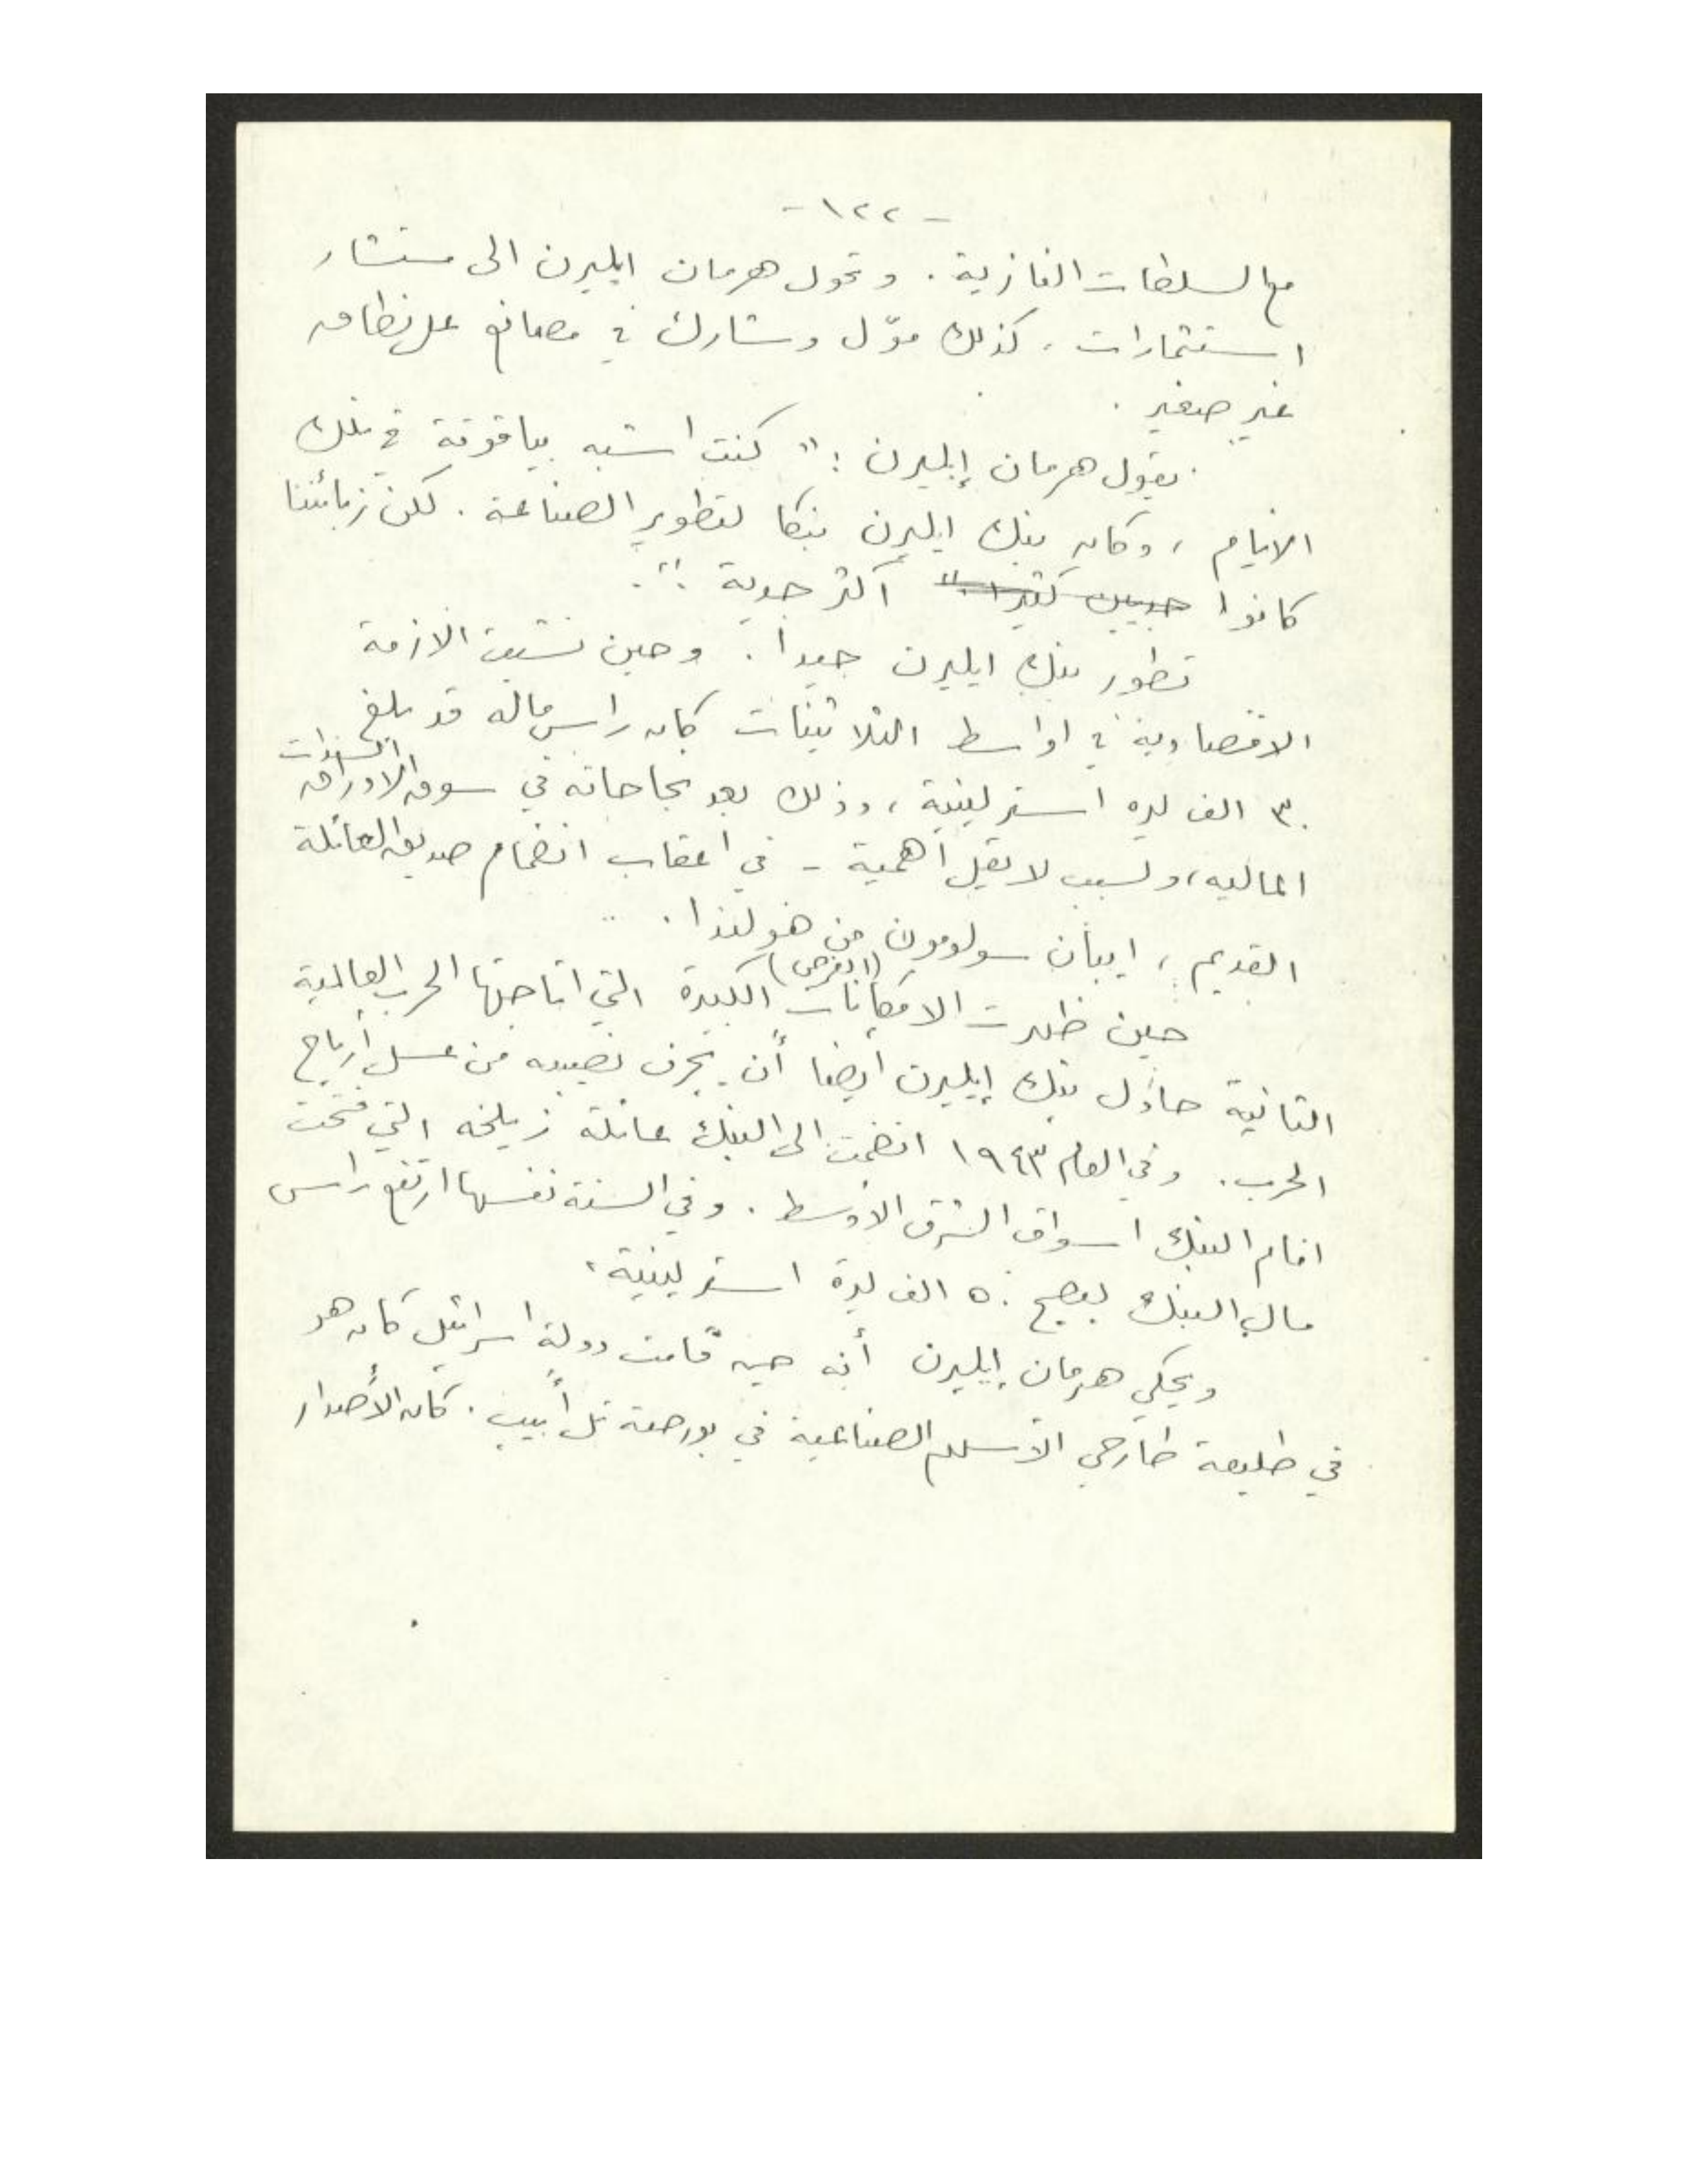 - ١٢٢ -
مع السلطات النازية. وتحول هرمان ايليرن الى مستشار
استثمارات، كذلك موّل وشارك في مصانع على نطاق
غير صغير.
يقول هرمان إيليرن: "كنت اشبه بياقوتة في تلك
الايام، وكان بنك ايليرن بنكا لتطوير الصناعة. لكن زبائننا
كانوا أكثر جدية".
تطور بنك ايليرن جيدا. وحين نشبت الازمة
الاقتصادية في اواسط الثلاثينات كان راس ماله قد بلغ
السندات
٣٠ الف ليره استرلينية، وذلك بعد نجاحاته في سوق الاوراق
الماليه، ولسبب لا يقل أهمية - في اعقاب انضمام صديق العائلة
القديم، ايبان سولومون من هولندا.
(الفرص)
حين ظهرت الامكانات الكبيرة التي اتاحتها الحرب العالمية
الثانية حاول بنك إيليرن أيضا أن يجرف نصيبه من عسل أرباح
الحرب. وفي العام ١٩٤٣ انضمت الى البنك عائلة زيلخه التي فتحت
امام البنك اسواق الشرق الاوسط. وفي السنة نفسها ارتفع راس
مال البنك ليصبح ٥٠ الف ليرة استرلينية.
ويحكي هرمان إيليرن أنه حين قامت دولة اسرائيل كان هو
في طليعة طارحي الأسهم الصناعية في بورصة تل أبيب. كان الأصدار